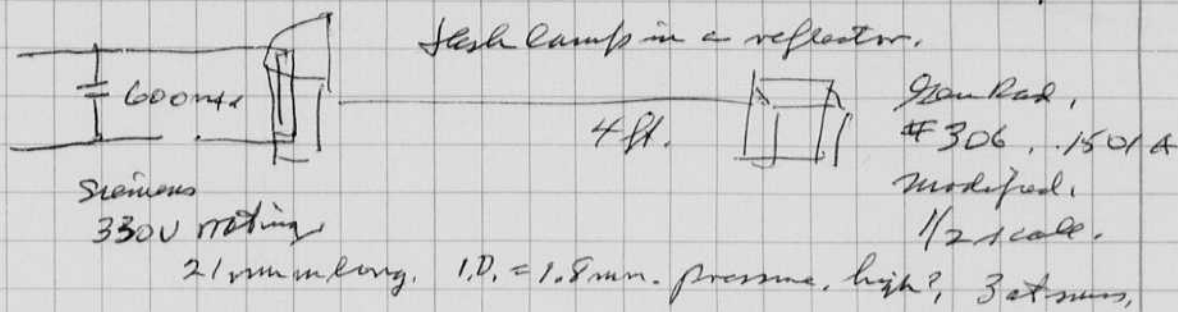 flash lamp in a reflector.
600mfd
4 ft.
Gen Rad,
#306, .1501A
modified.
1/2 scale.
Siemens
330V rating
21 mm long. I.D. = 1.8 mm. pressure. high?, 3 atmos,